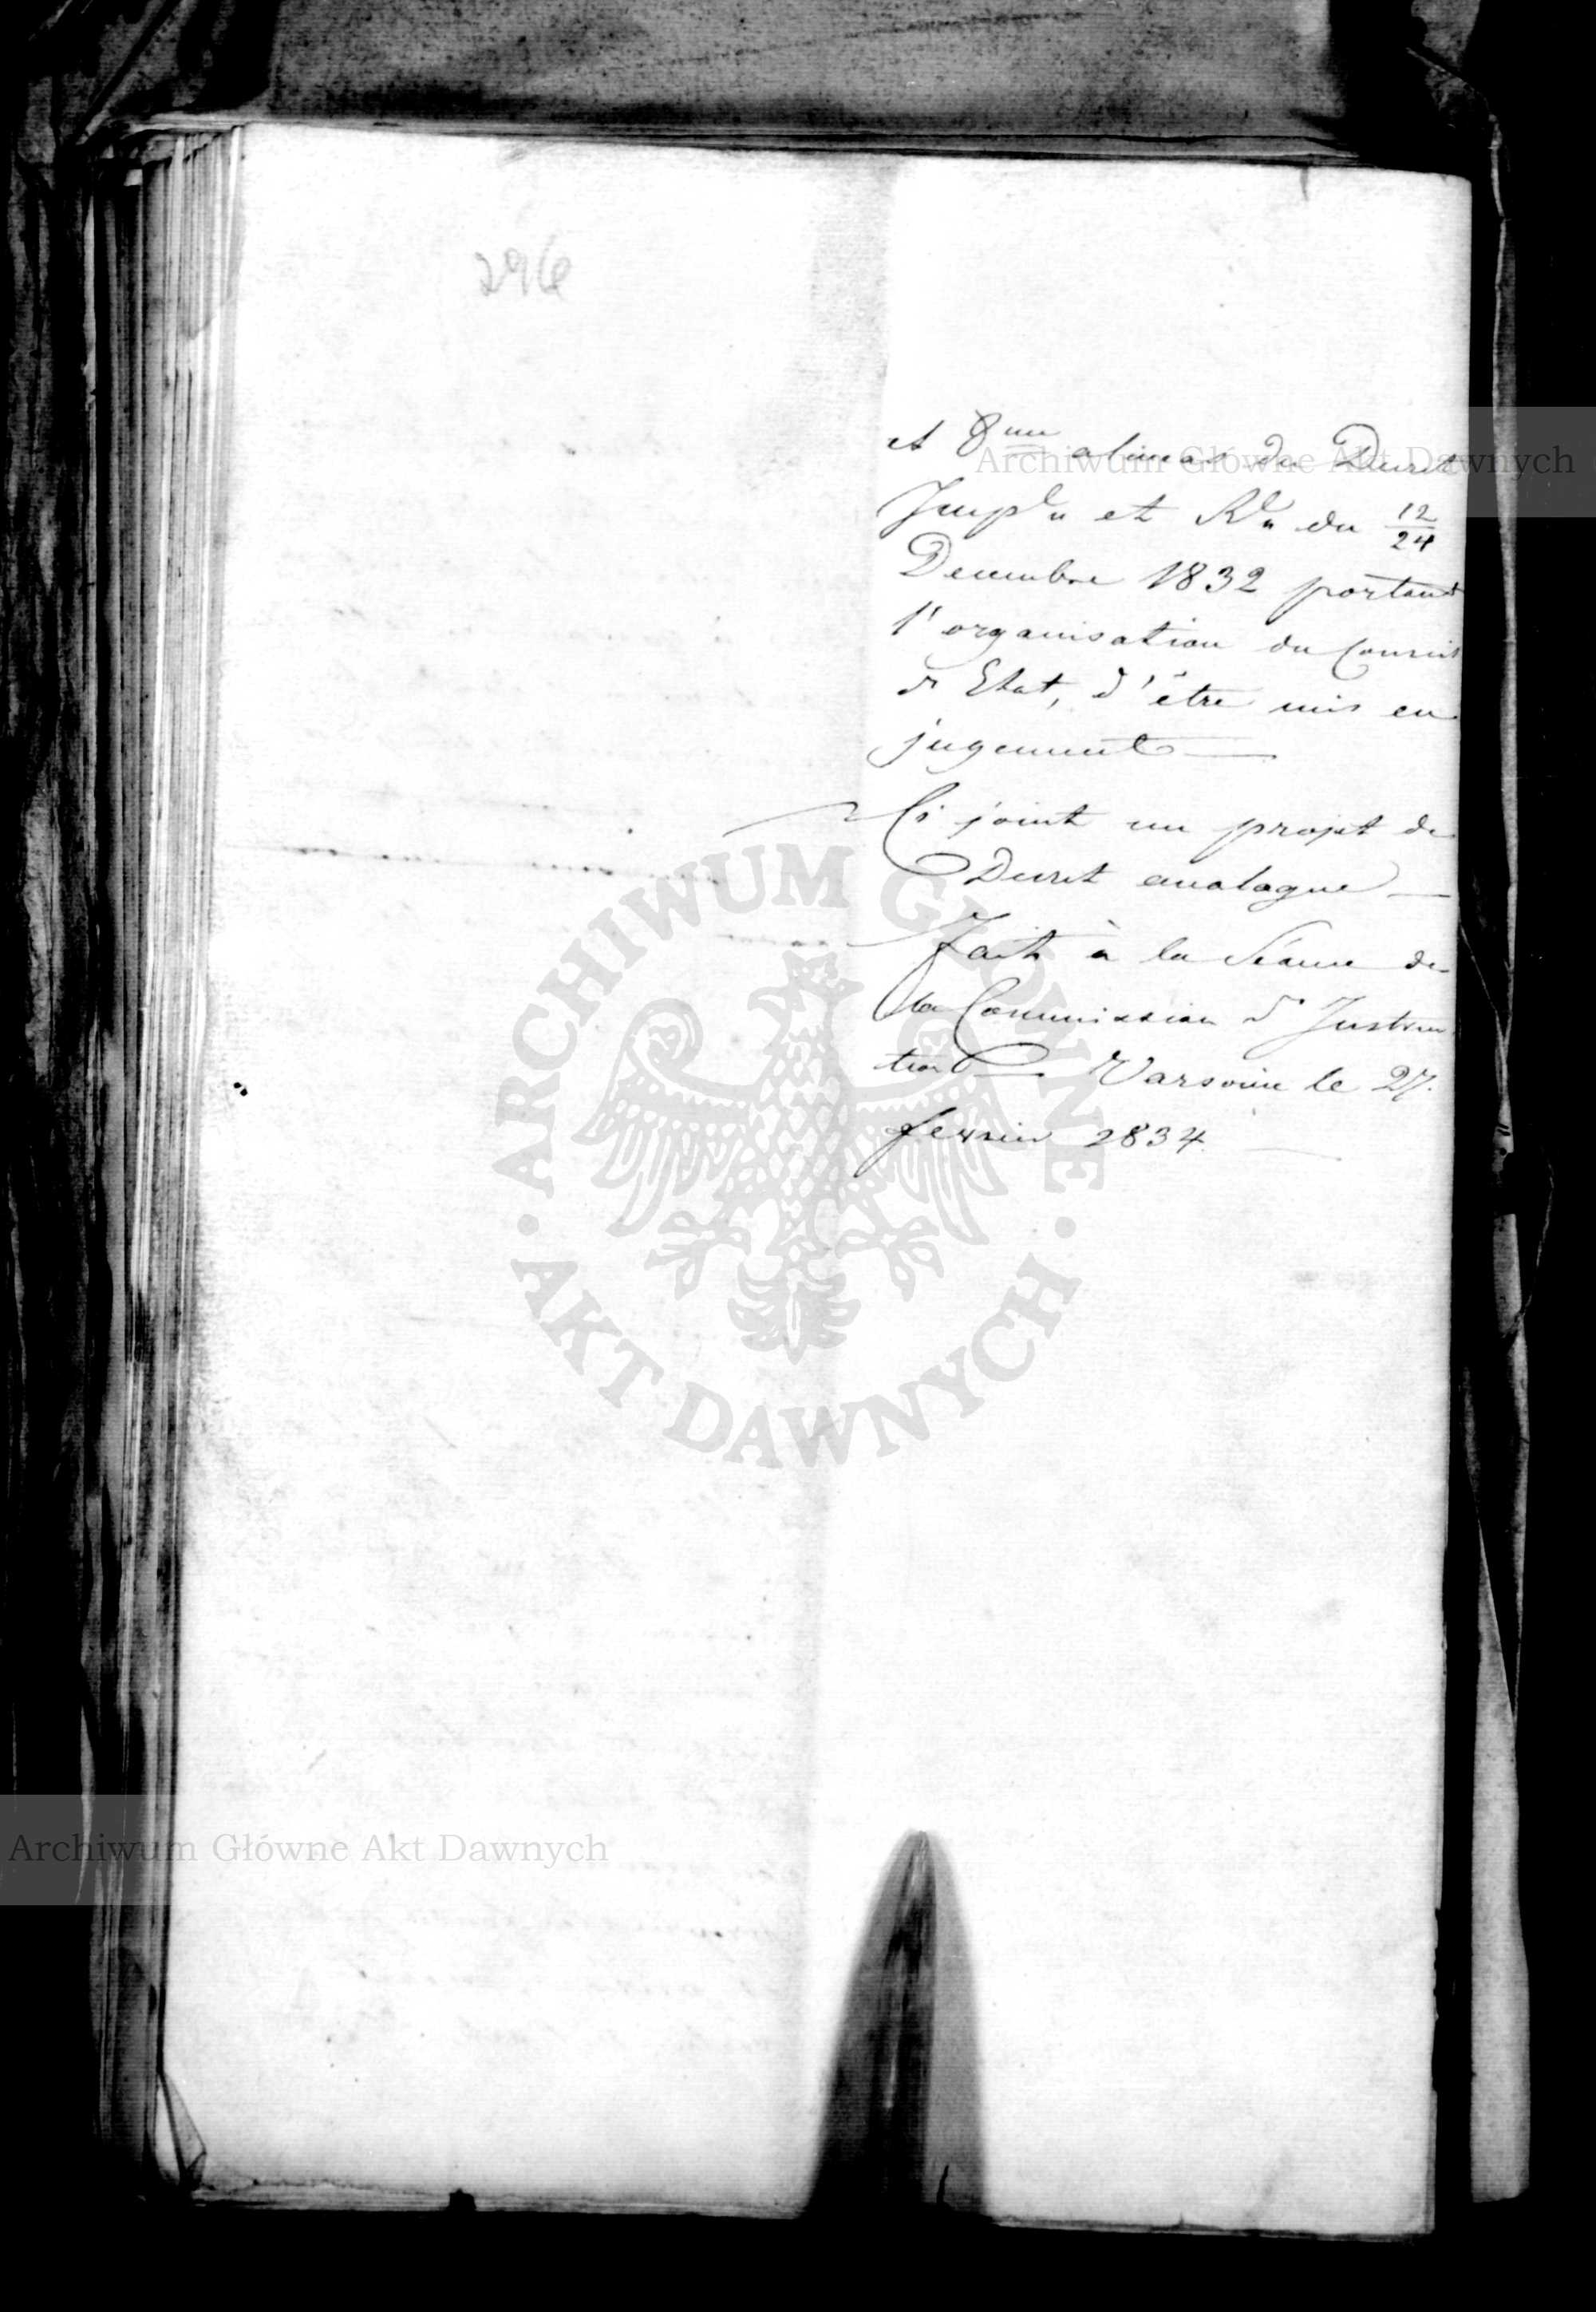 296
et 8me alineas du Decret
Impl. et Rl. du 12/24
Decembre 1832 portant
l'organisation du Conseil
d'Etat, d'être mis en
jugement
Ci joint un projet de
Decret analogue
Fait à la Séance de
la Commission d'Instruc
tion Varsovie le 27.
fevrier 1834.
Archiwum Główne Akt Dawnych
ARCHIWUM GŁÓWNE
AKT DAWNYCH
Archiwum Główne Akt Dawnych